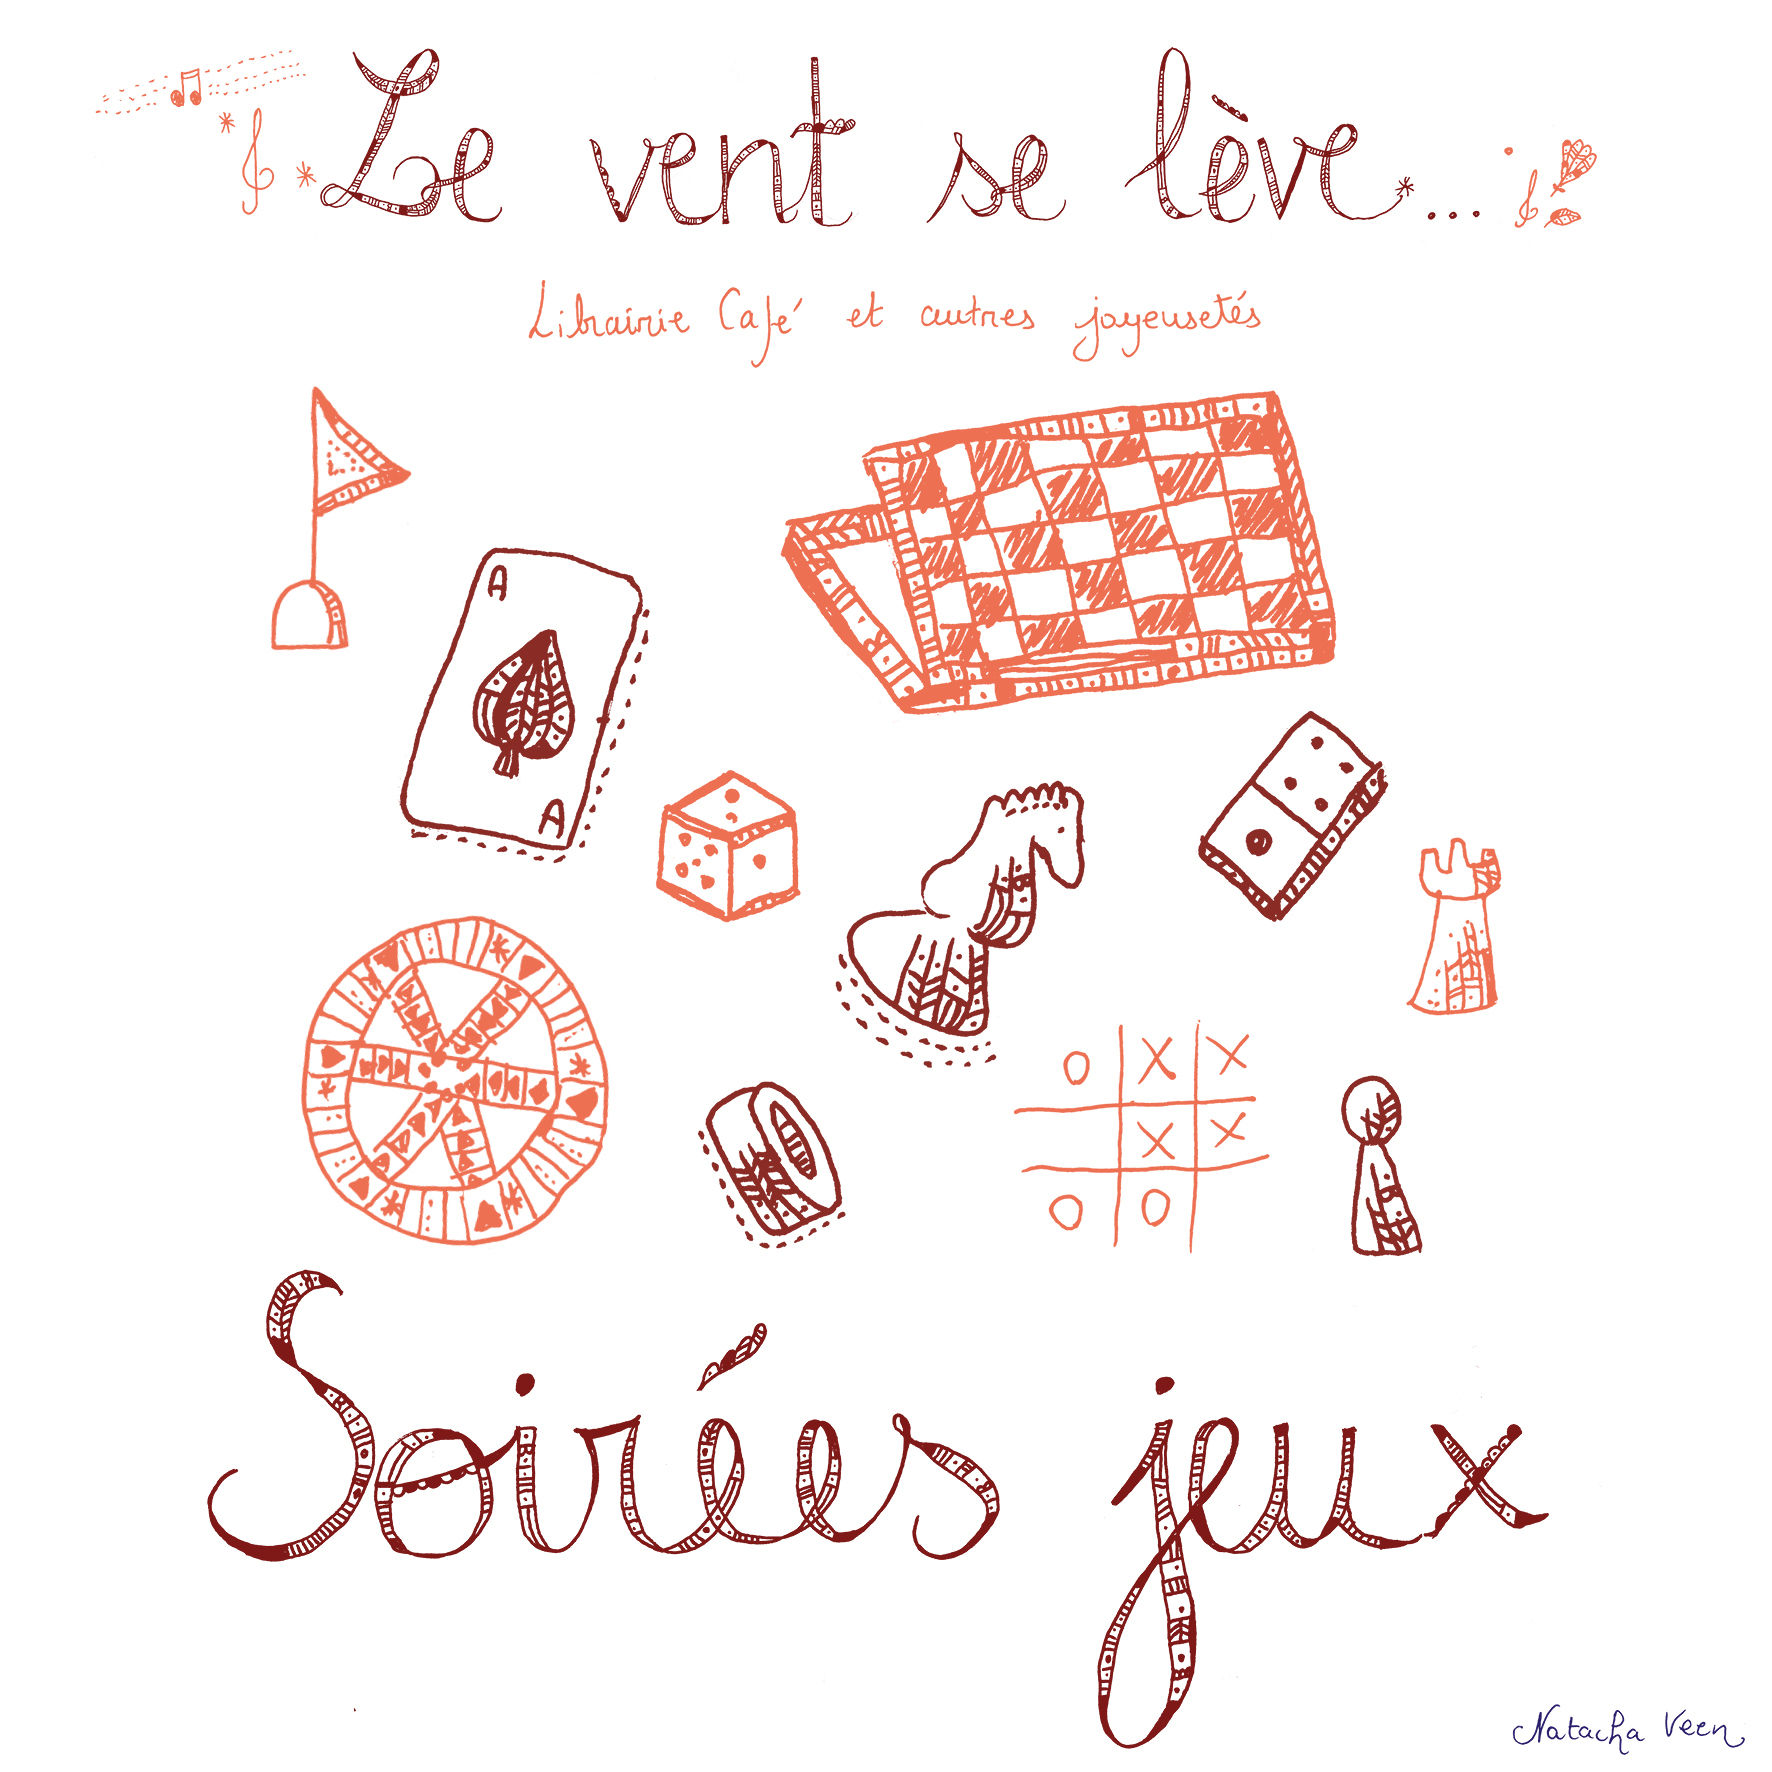 Le vent se lève...
Librairie Café et autres joyeusetés
A
A
O X X
X X
O O
Soirées jeux
Natacha Veen